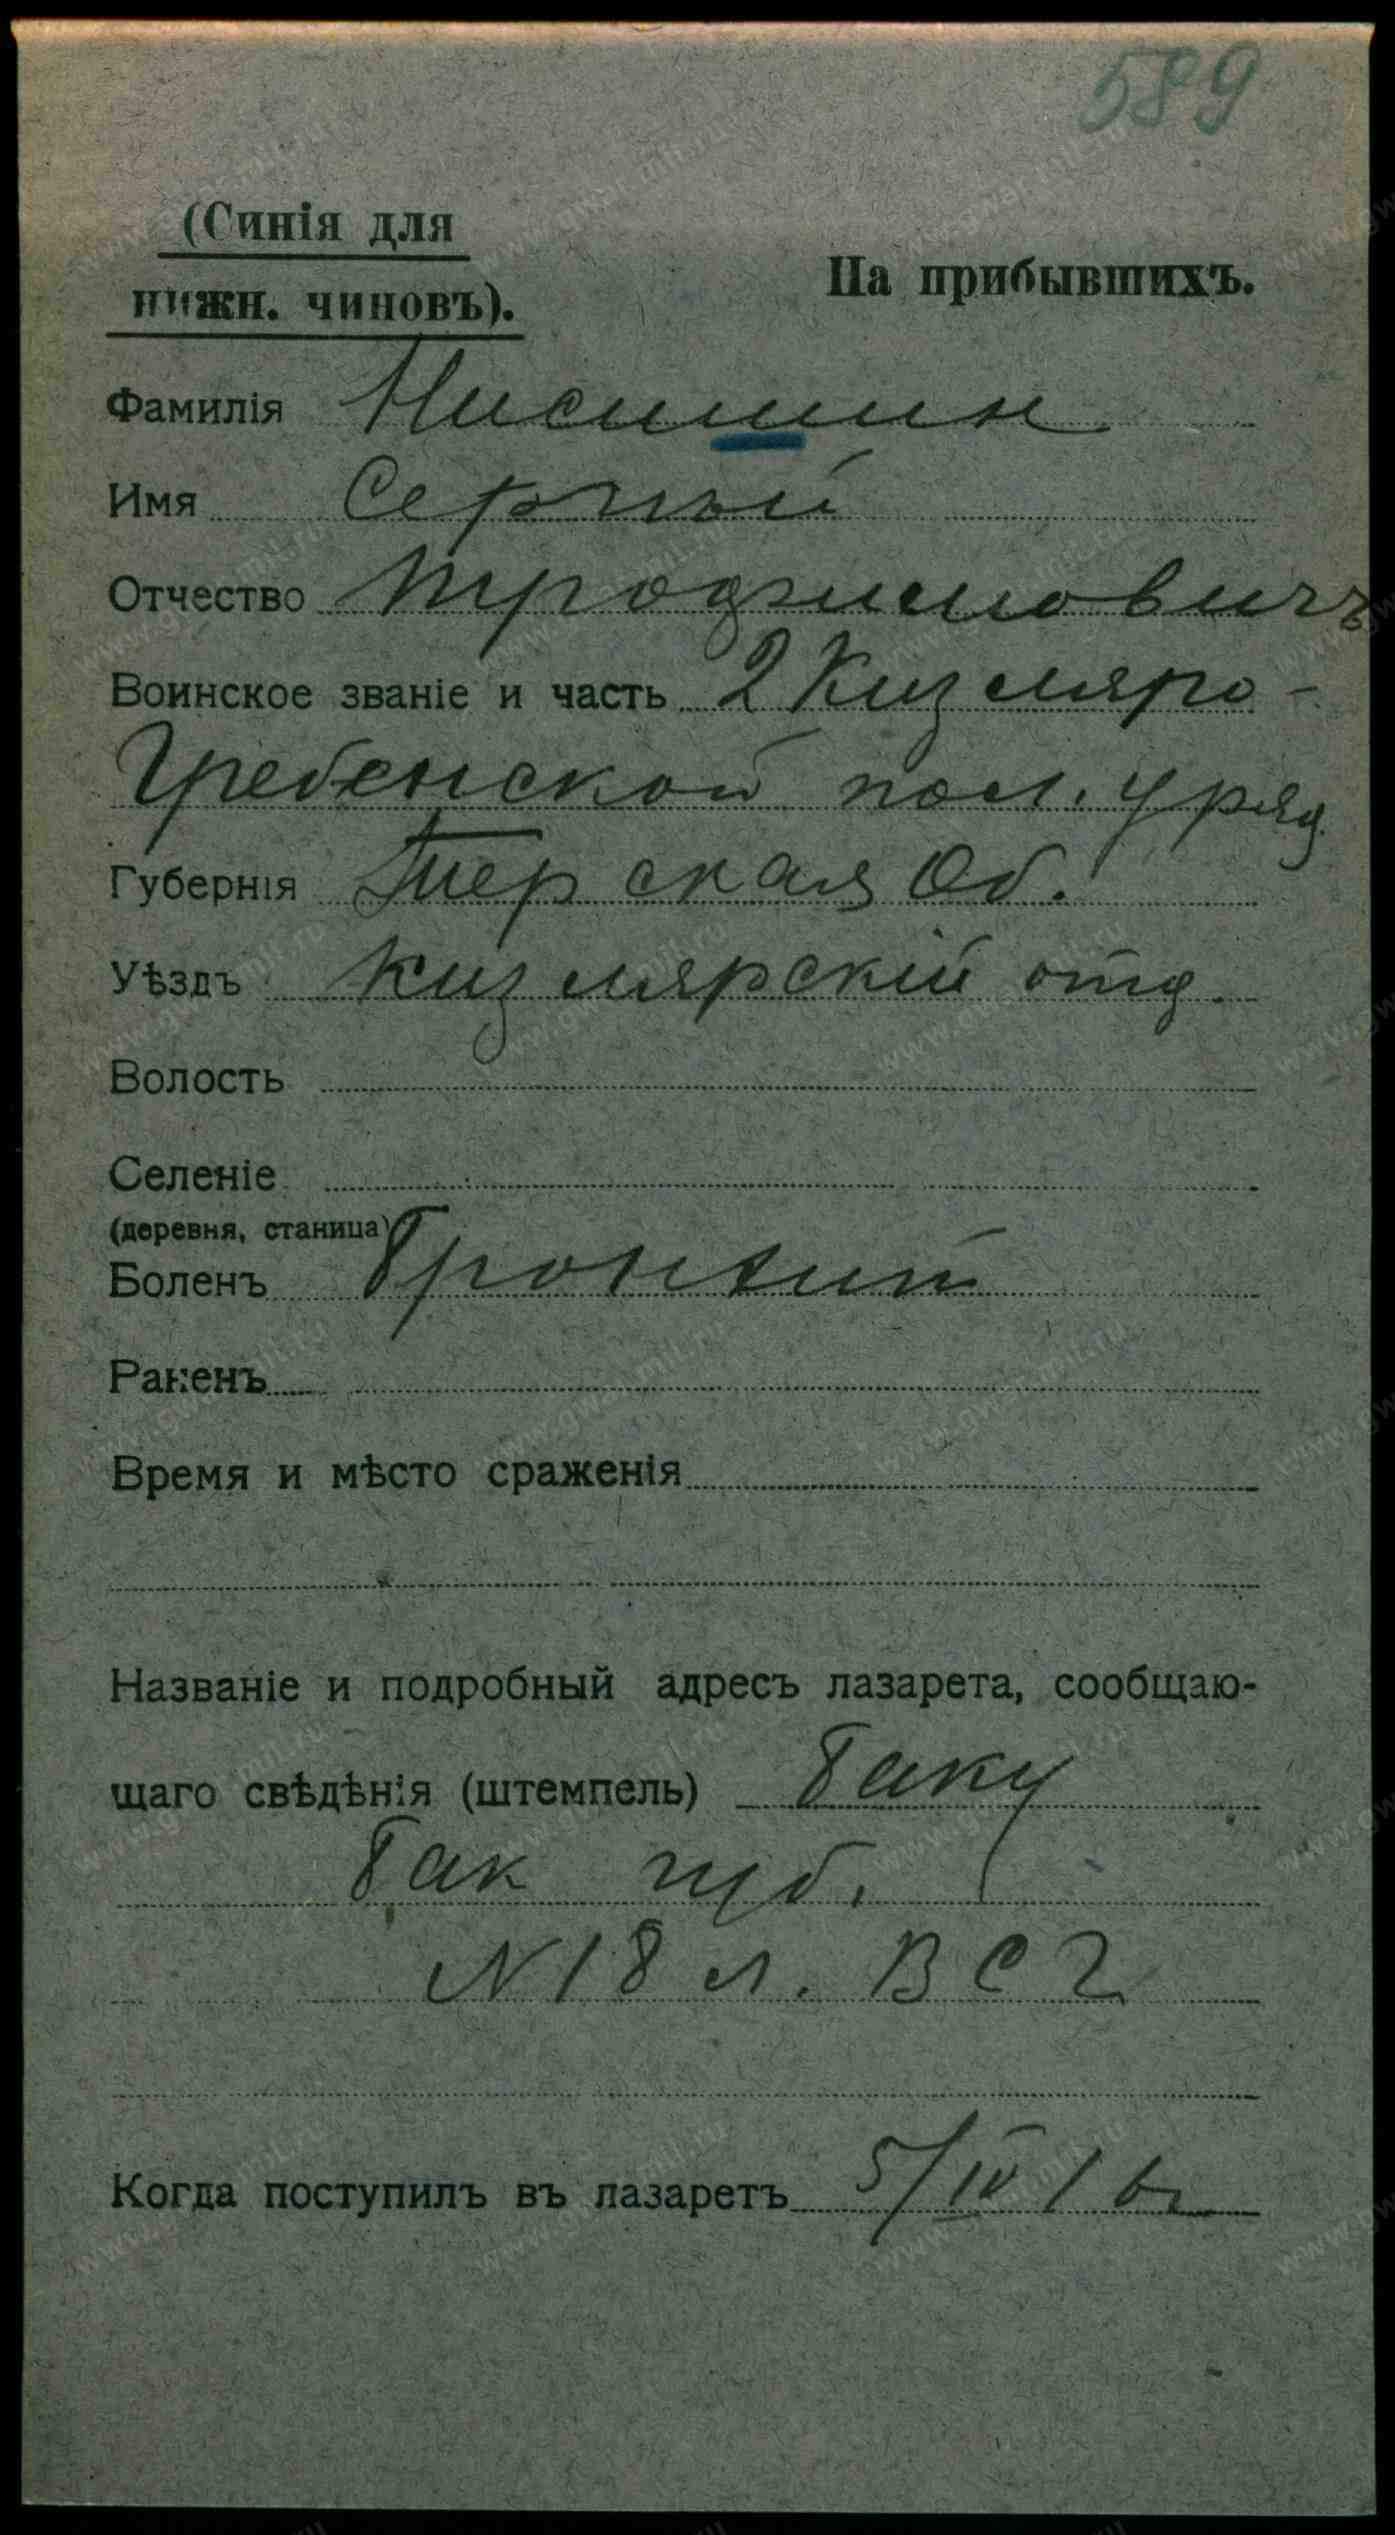 589
(Синія для
нижн. чиновъ).
На прибывшихъ.
Фамилія
Имя Сергѣй
Отчество Трофимовичъ
Воинское званіе и часть 2 Кизляро-
Гребенской пол. уряд
Губернія Терская Об.
Уѣздъ Кизлярскій отд.
Волость
Селеніе
(деревня, станица)
Боленъ Бронхит
Раненъ
Время и мѣсто сраженія
Названіе и подробный адресъ лазарета, сообщаю-
щаго свѣдѣнія (штемпель) Баку
Бак губ.
N 18 л. В С Г
Когда поступилъ въ лазаретъ 5/IV 16 г